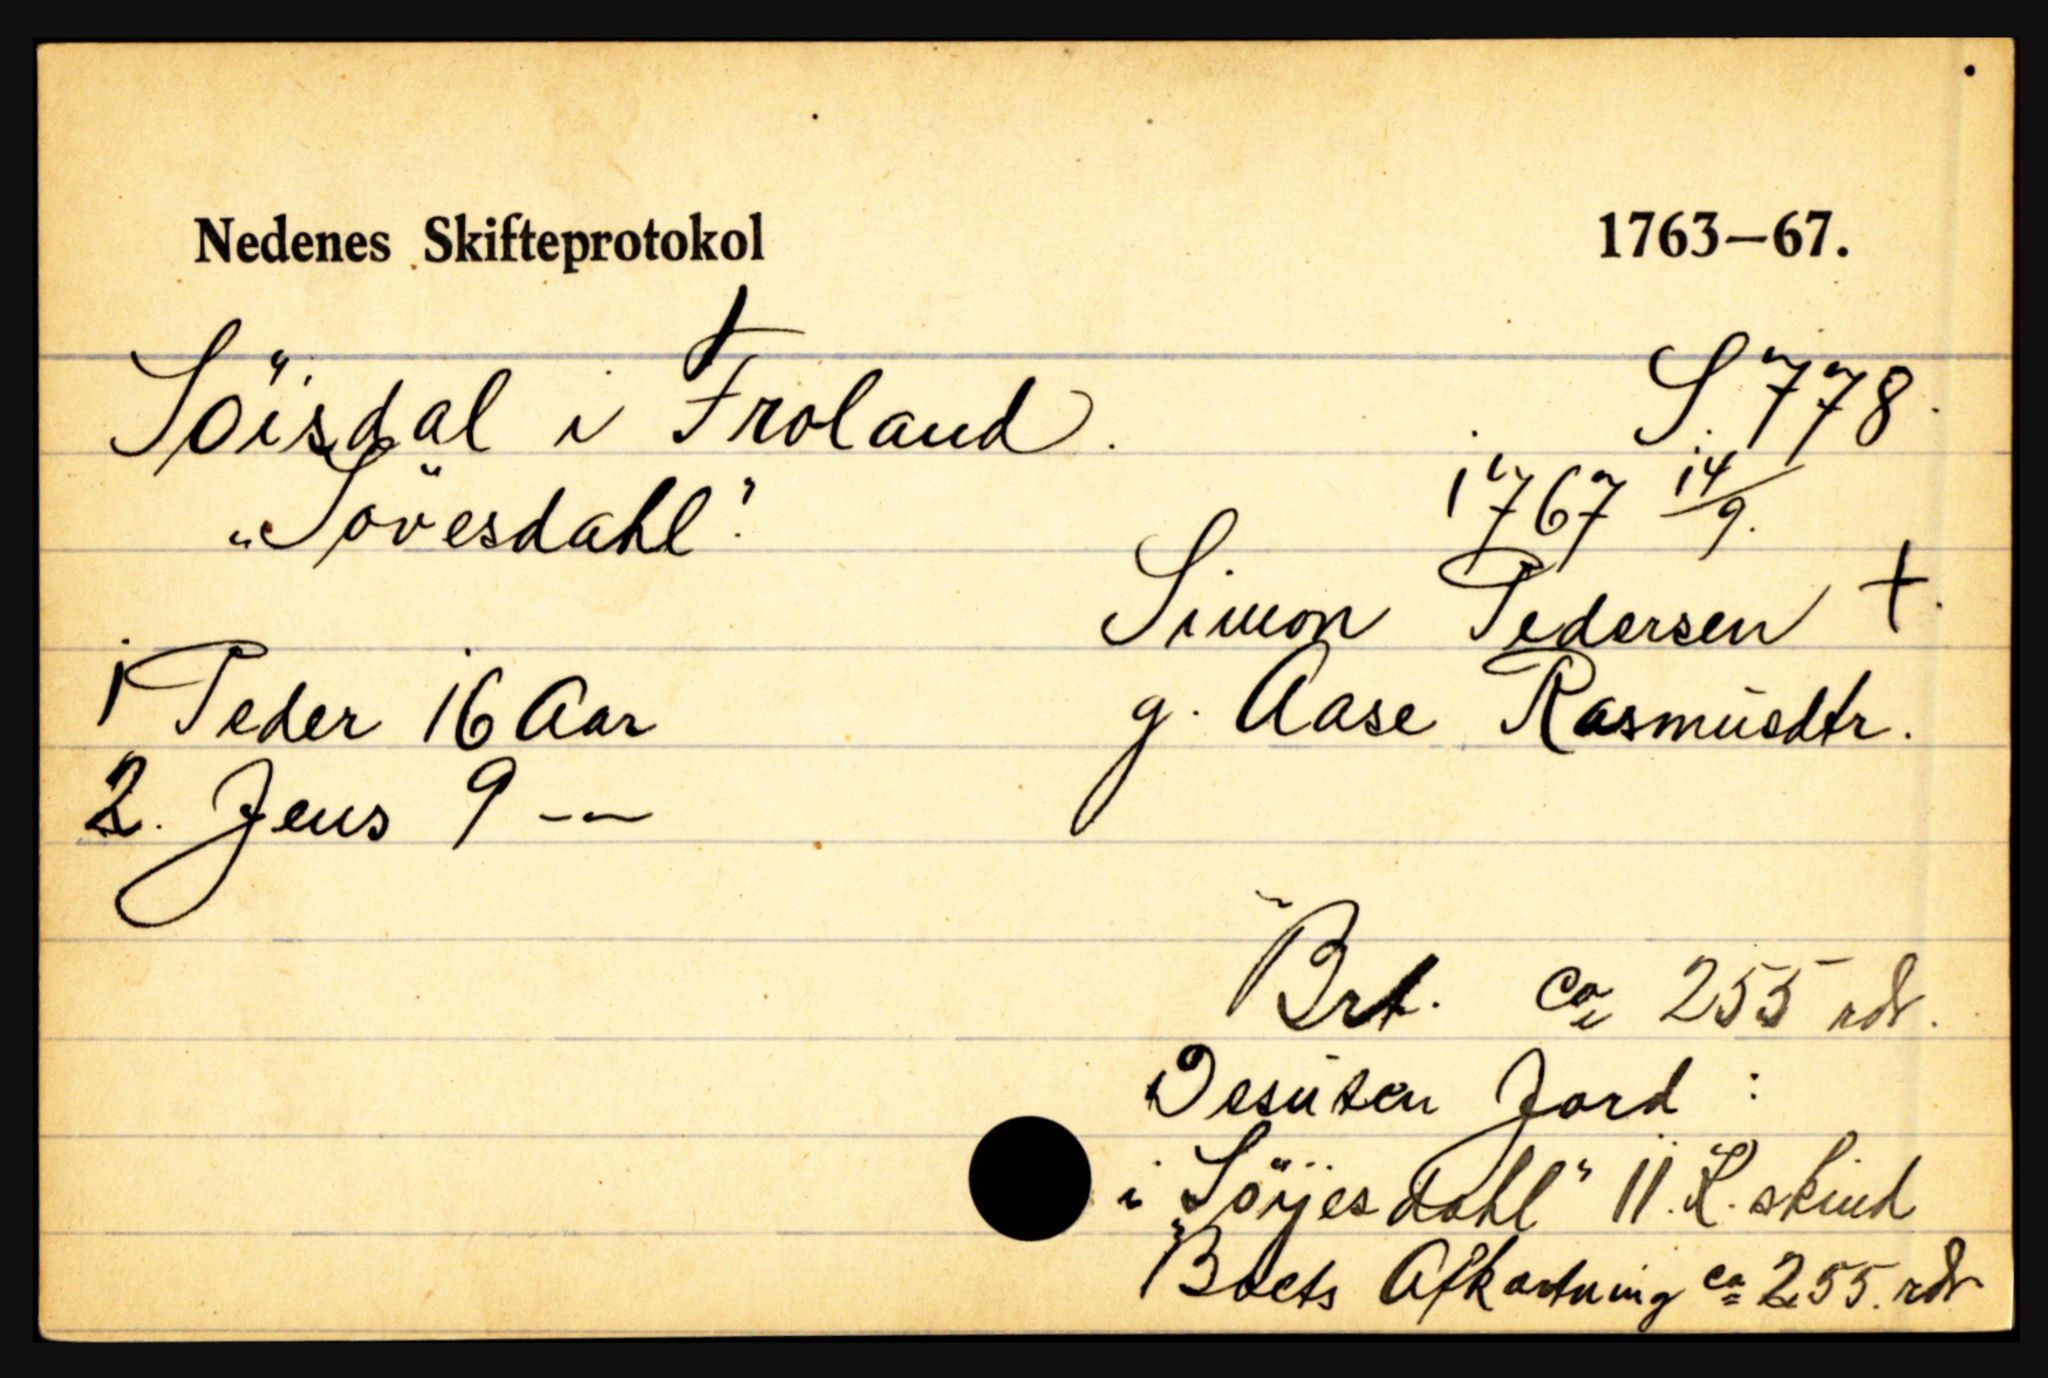 Nedenes Skifteprotokol 1763–67.
Söisdal i Froland. S. 778.
"Sövesdahl". 1767 14/9.
Simon Pedersen +.
1 Peder 16 Aar g. Aase Rasmusdtr.
2. Jens 9 — —
Brt. ca 255 rdr.
Desuten Jord :
i "Söijesdahl" 11. K. skind
Boets Afkortning ca 255. rdr